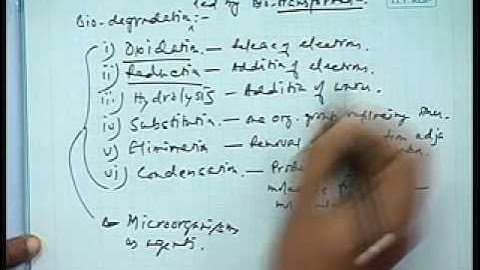 led by Bio-transfor
Bio-degradation:-
i) Oxidation — Release of electrons.
ii) Reduction — Addition of electrons.
iii) Hydrolysis — Addition of water.
iv) Substitution — one org. group replacing other.
v) Elimination — Removal adja
vi) Condensation — Produ
Microorganisms
as agents.